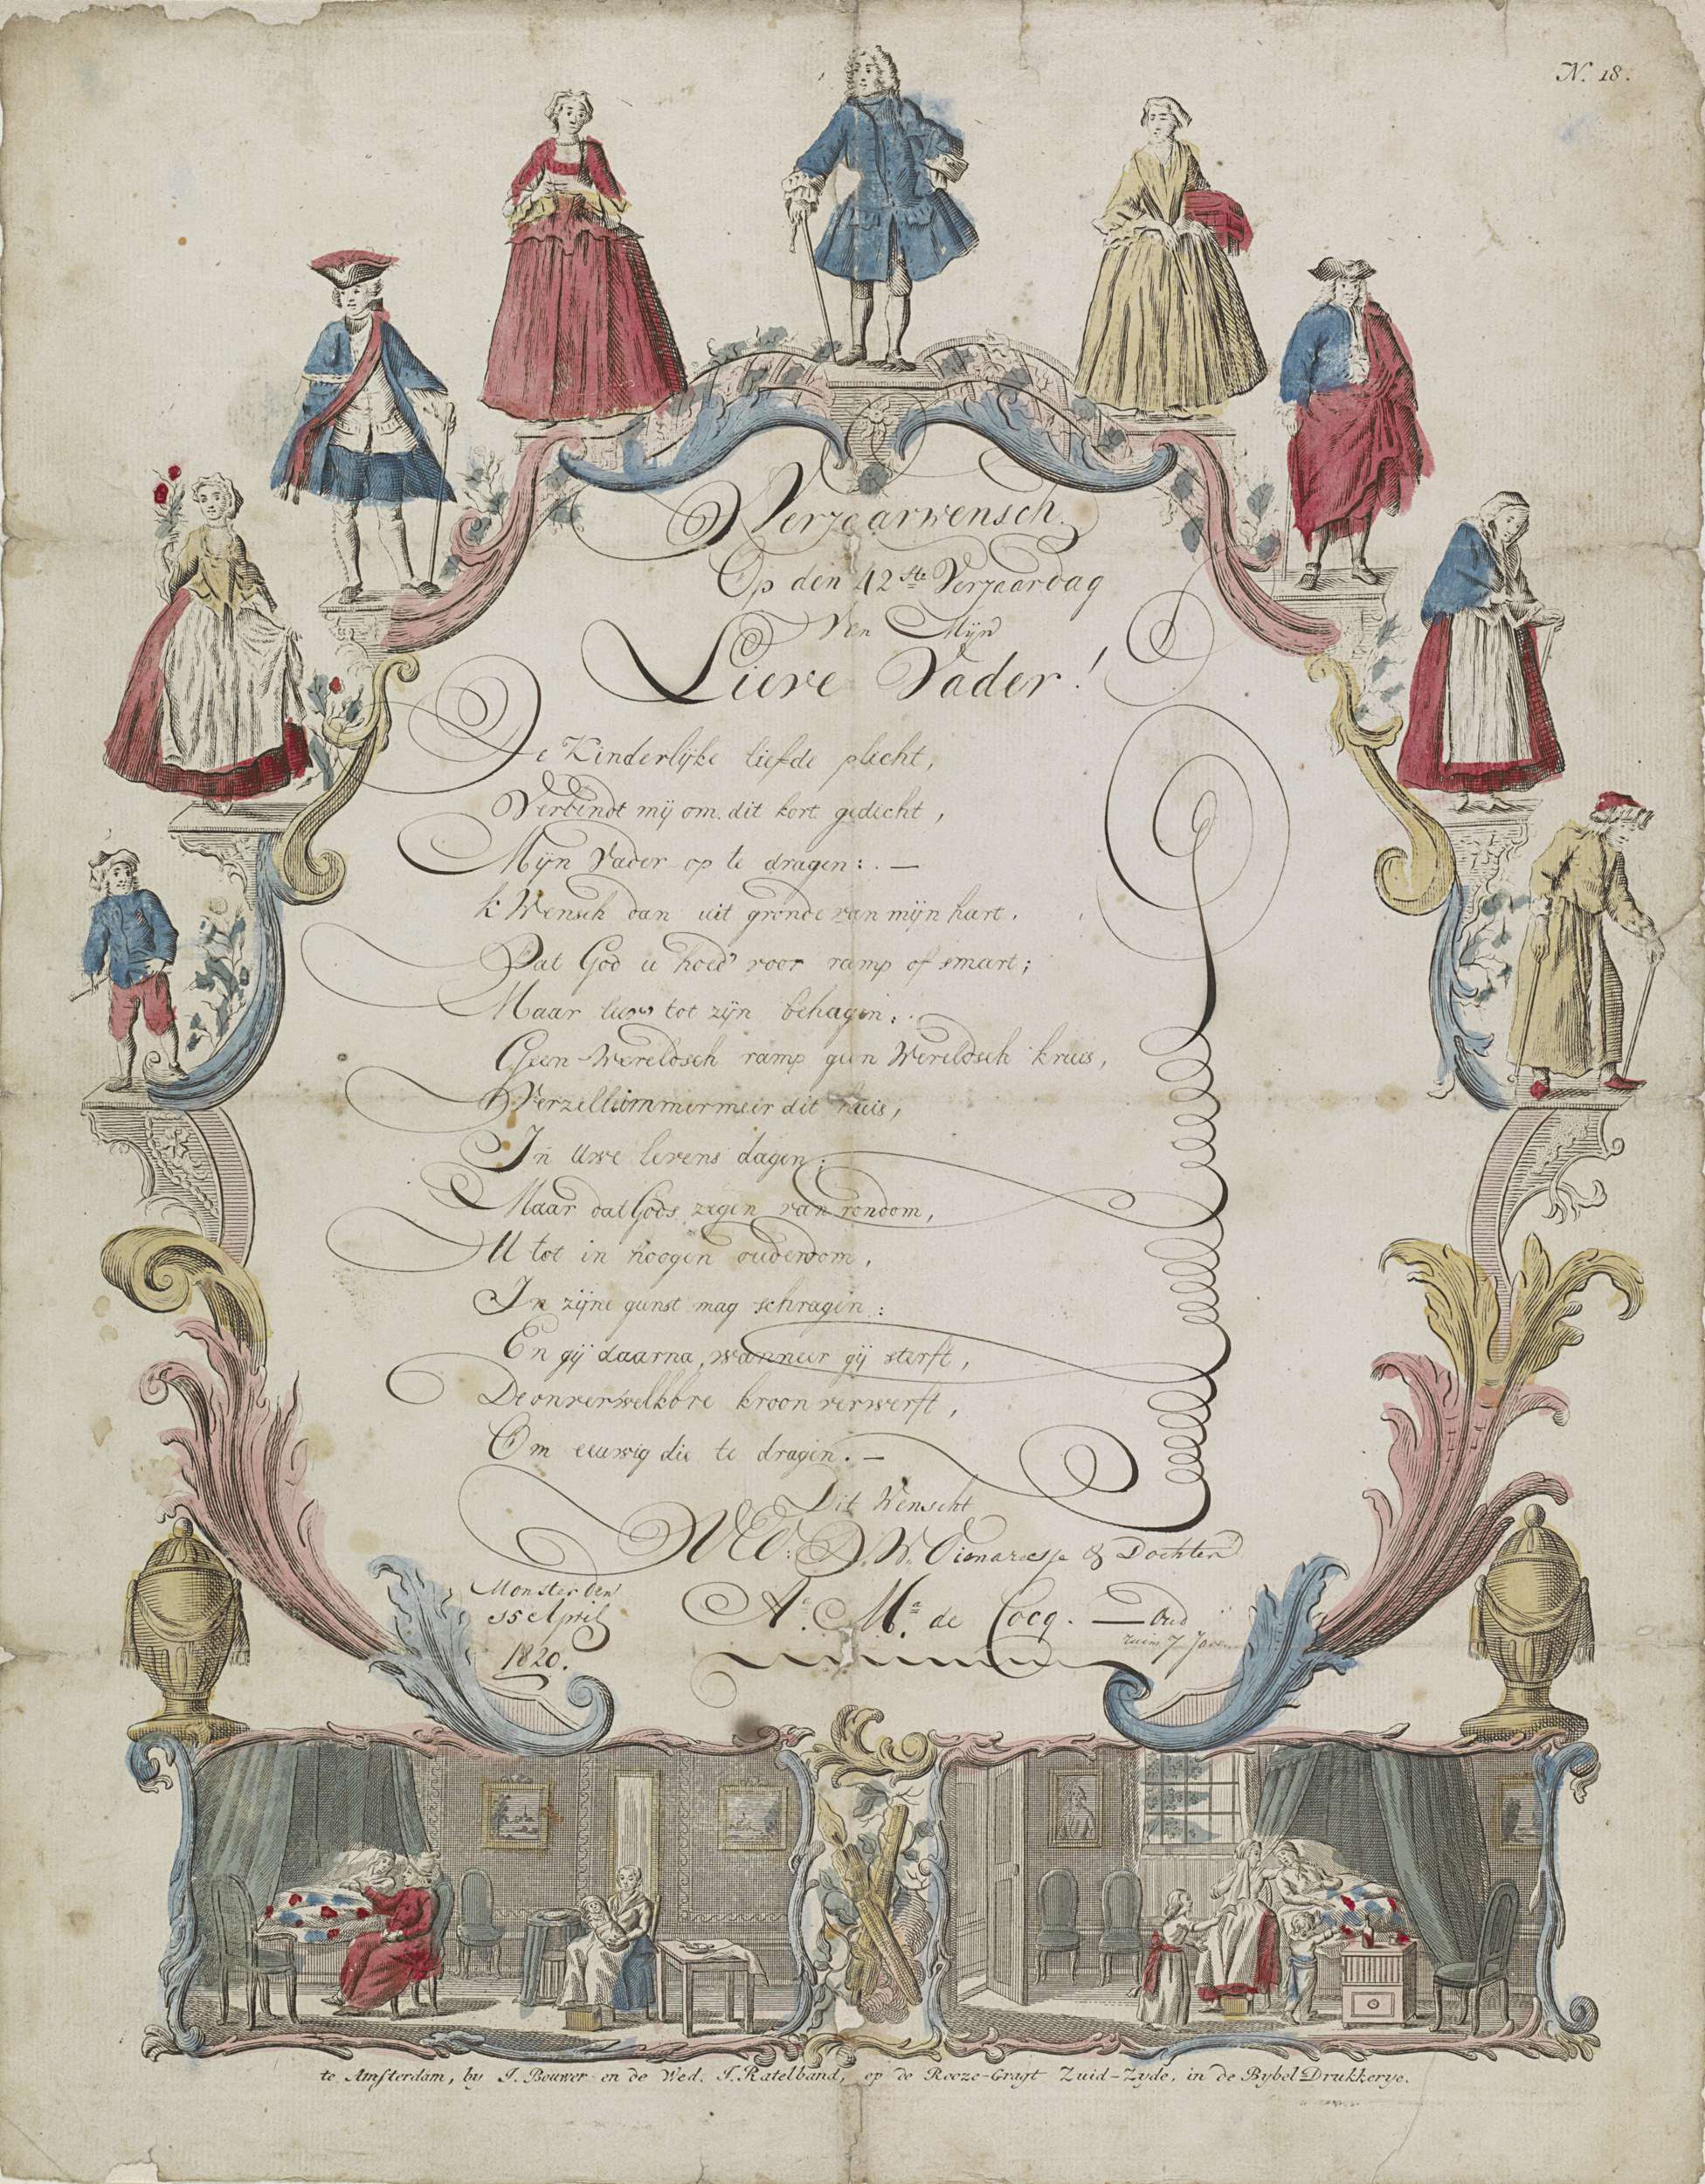 N. 18.
Verjaarwensch
Op den 42ste Verjaardag
Van Mijn
Lieve Vader!
De Kinderlijke liefde plicht,
Verbindt mij om dit kort gedicht,
Mijn Vader op te dragen: . —
k Wensch dan uit gronde van mijn hart.
Dat God u hoed' voor ramp of smart;
Maar tot zijn behagen;
Geen Wereldsch ramp geen Wereldsch kruis,
Verzell immermeer dit huis,
In uwe levens dagen;
Maar dat Gods zegen van rondom,
U tot in hoogen ouderdom,
In zijne gunst mag schragen:
En gij daarna, wanneer gij sterft,
De onverwelkbre kroon verwerft,
Om eeuwig die te dragen. —
Dit Wenscht
D. W. & Dochter
A.a M.a de Cocq. — Oud
ruim 7 Jaren
Monster den
15 April
1820.
te Amsterdam, by J. Bouwer en de Wed. J. Ratelband, op de Rooze-Gragt Zuid-Zyde, in de Bybel-Drukkerye.